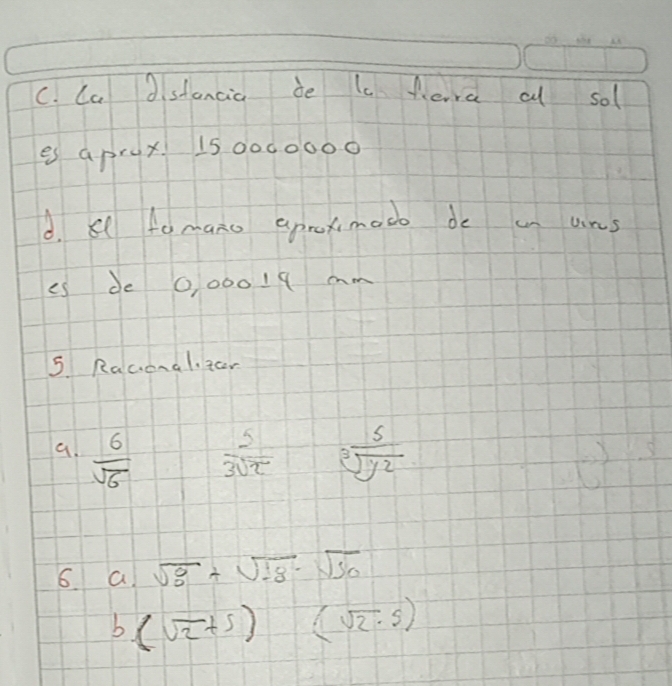 C. La distancia de la tierra al sol
es aprox. 150000000
d. El tamaño aproximado de un virus
es de 0,00019 mm
5. Racionalizar
a. 6/√6 5/3√x 5/∛y2
6 a. √8 + √18 - √50
b. (√2+5) (√2-5)